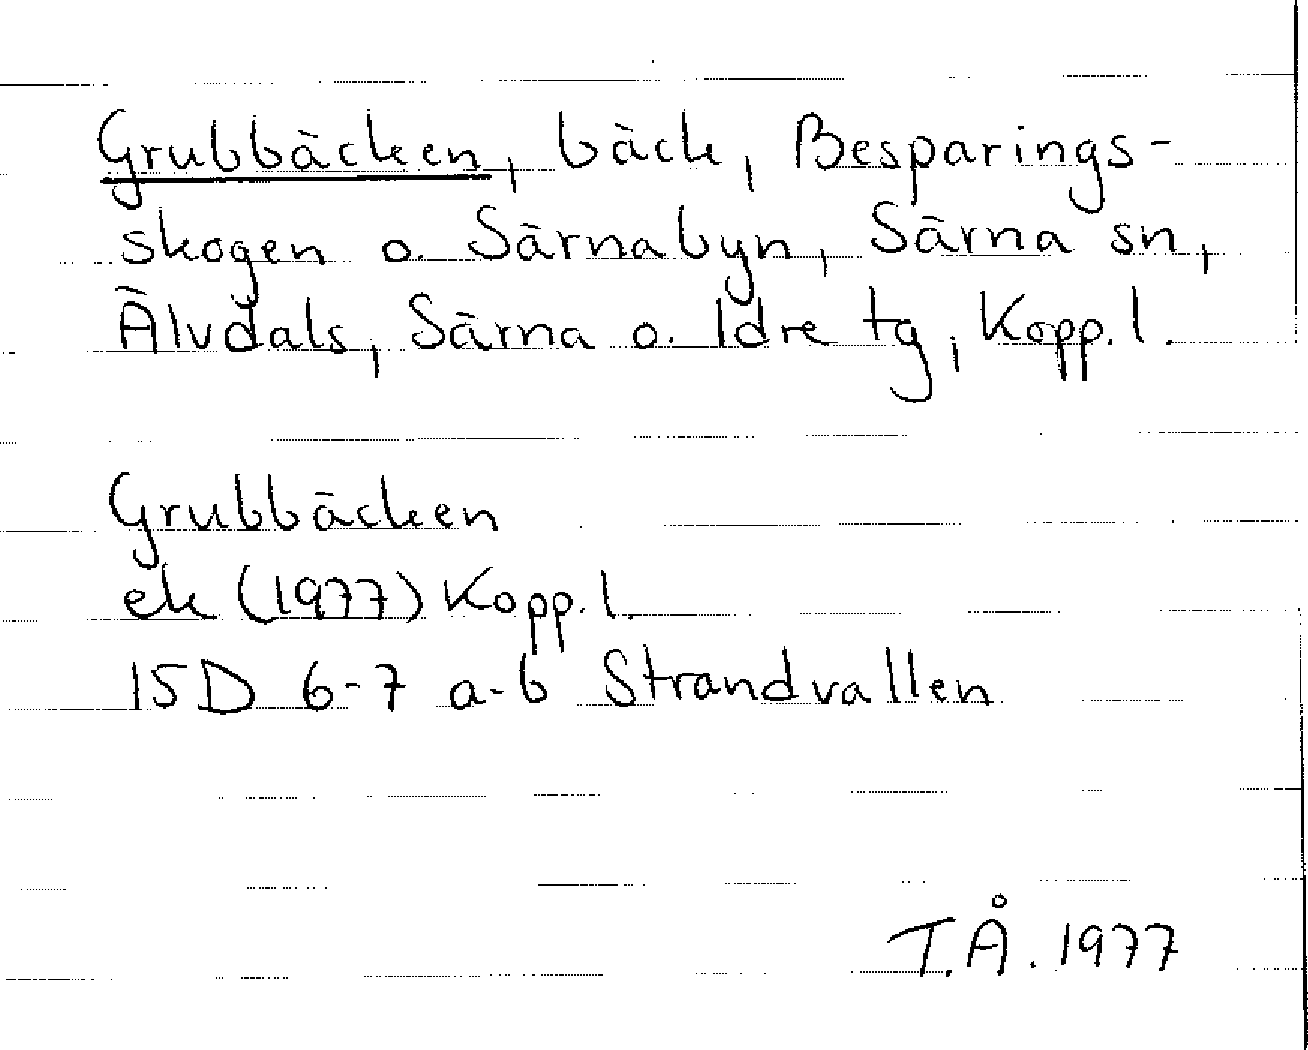 Grubbäcken, bäck, Besparings-
skogen o. Särnabyn, Särna sn,
Älvdals, Särna o. Idre tg, Kopp. l.
Grubbäcken
ek (1977) Kopp. l.
15D 6-7 a-b Strandvallen
T.Å. 1977